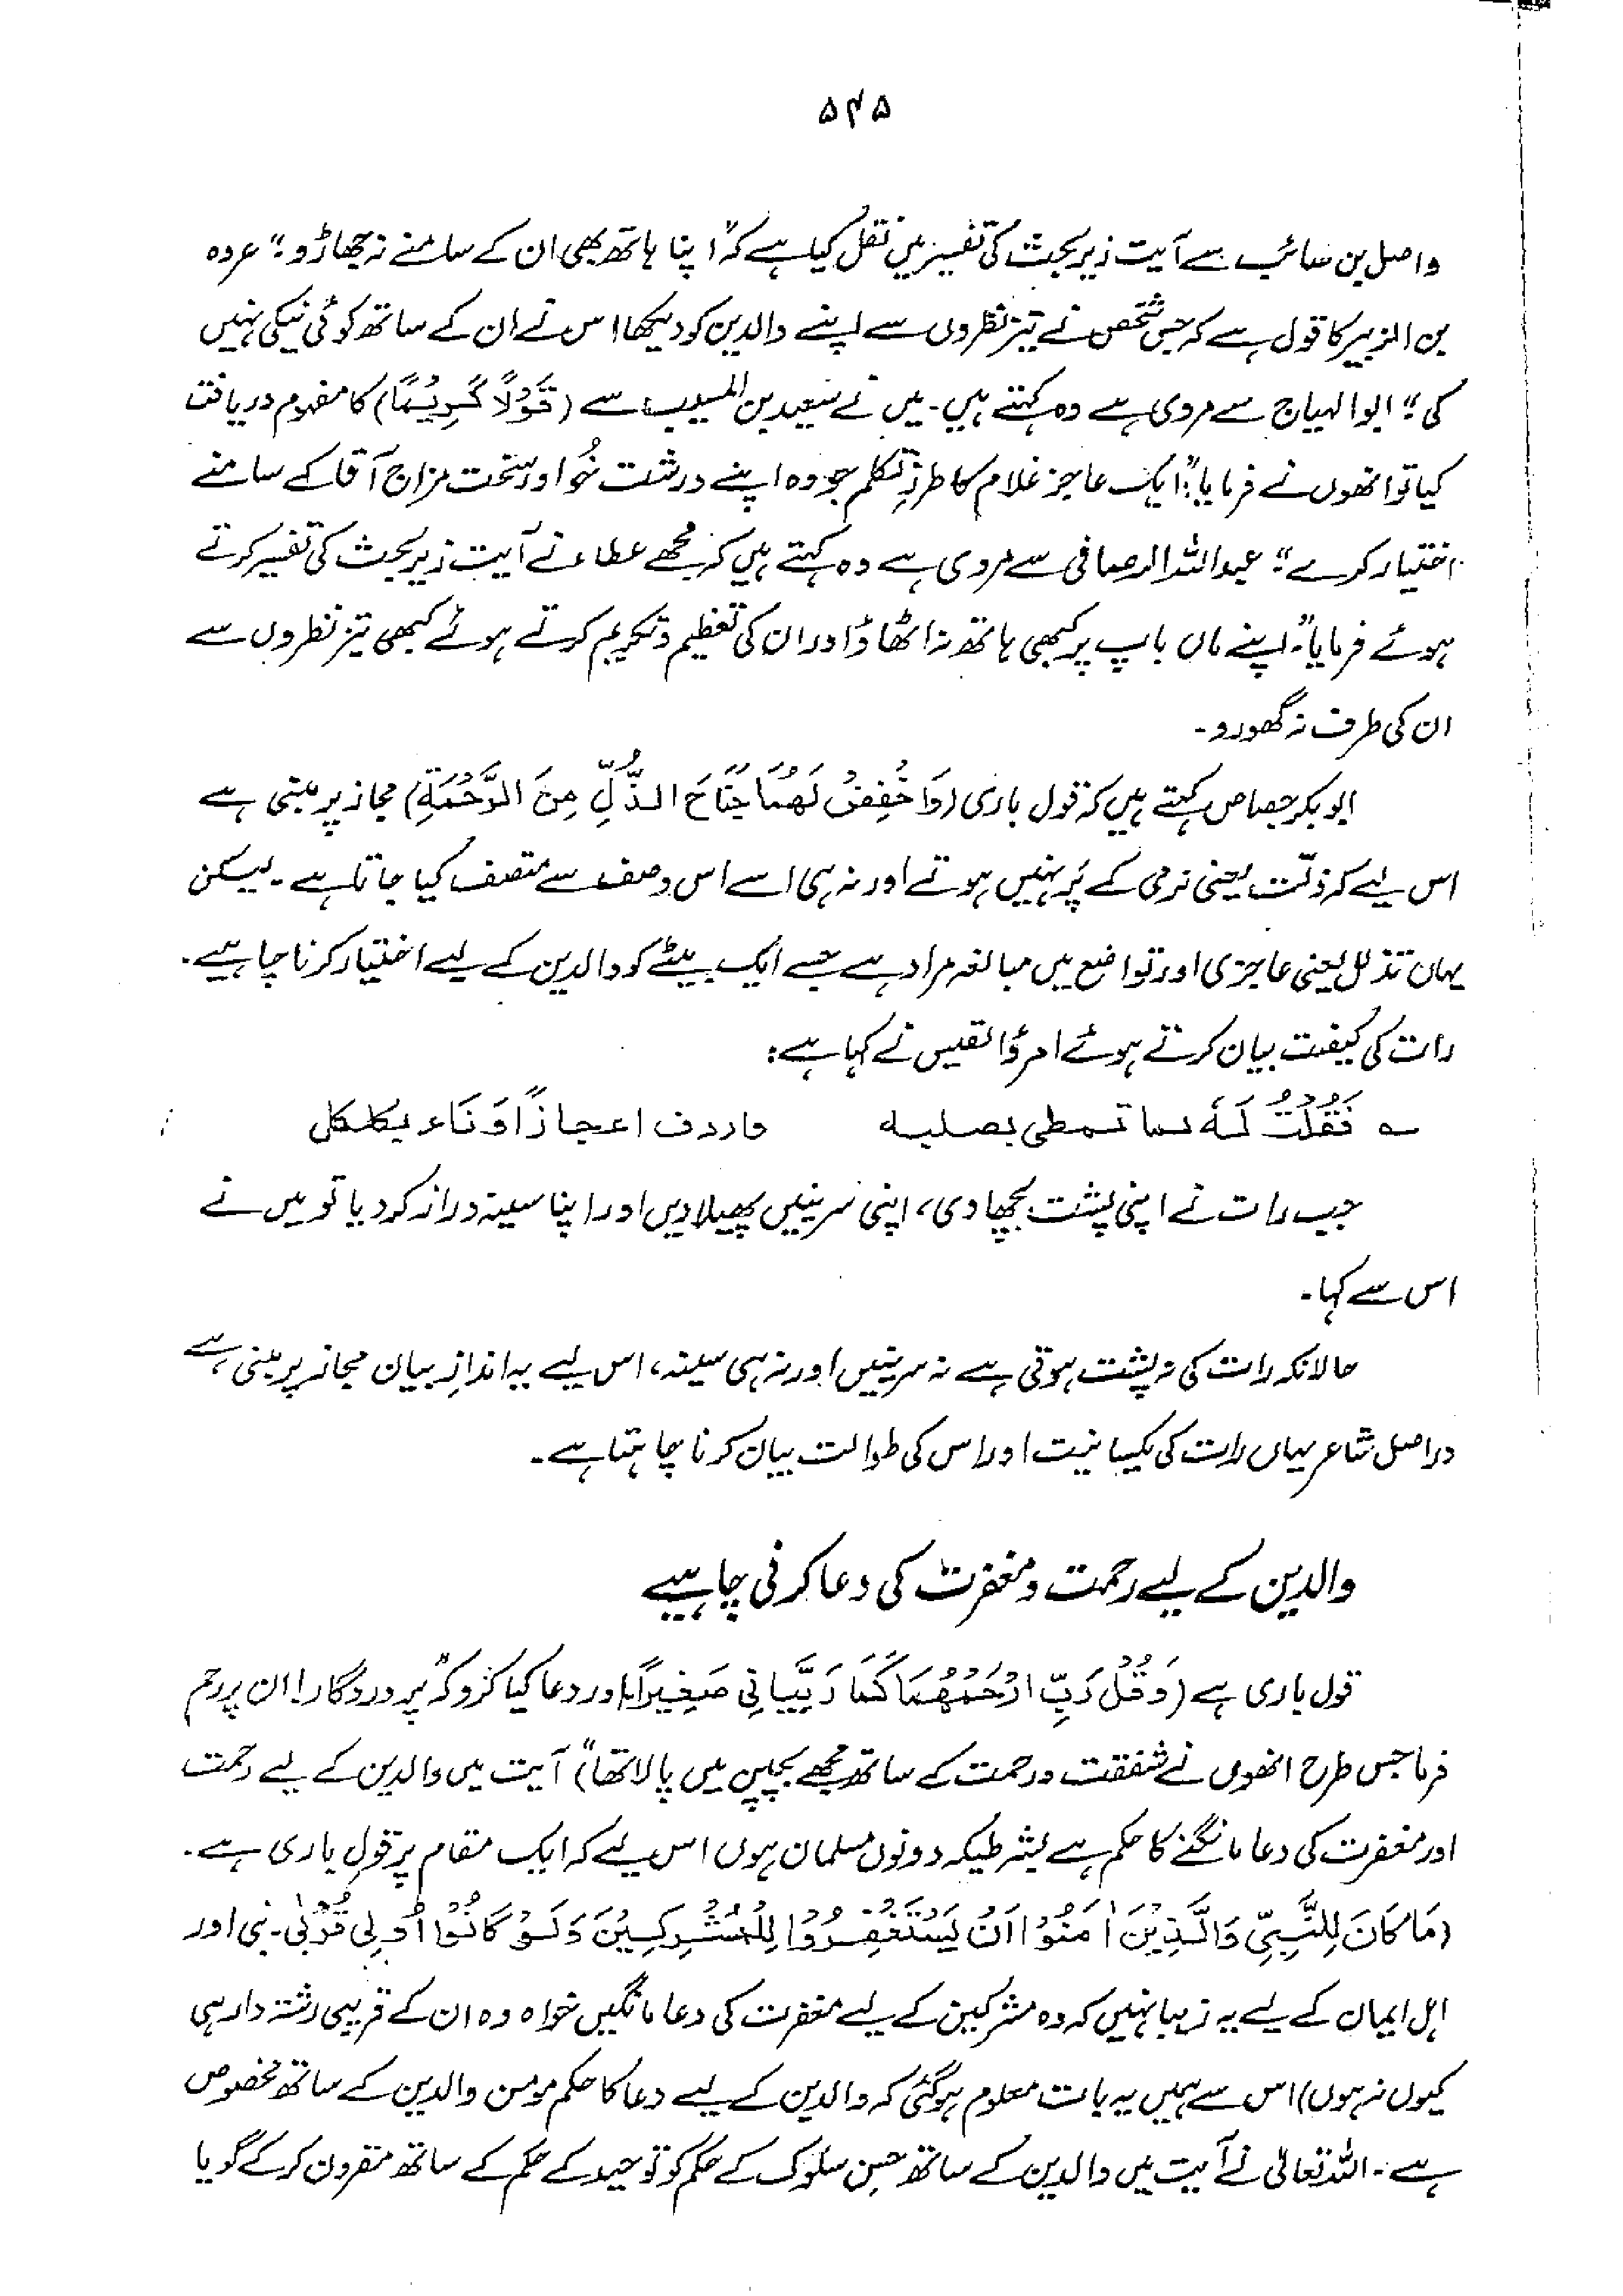 ۵۴۵
واصل بن سائب سے آیت زیر بحث کی تفسیر میں نقل کیا ہے کہ "اپنا ہاتھ بھی ان کے سامنے نہ جھاڑو" عروہ
بن الزبیر کا قول ہے کہ جس شخص نے تیز نظروں سے اپنے والدین کو دیکھا اس نے ان کے ساتھ کوئی نیکی نہیں
کی" ابوالہیاج سے مروی ہے وہ کہتے ہیں۔ میں نے سعید بن المسیب سے (قَوْلًا كَرِيْمًا) کا مفہوم دریافت
کیا تو انھوں نے فرمایا: "ایک عاجز غلام کا طرزِ تکلم جو وہ اپنے درشت خُو اور سخت مزاج آقا کے سامنے
اختیار کرے" عبداللہ الرصافی سے مروی ہے وہ کہتے ہیں کہ مجھے عطاء نے آیت زیر بحث کی تفسیر کرتے
ہوئے فرمایا "اپنے ماں باپ پر کبھی ہاتھ نہ اٹھاؤ اور ان کی تعظیم و تکریم کرتے ہوئے کبھی تیز نظروں سے
ان کی طرف نہ گھورو۔
ابوبکر جصاص کہتے ہیں کہ قول باری (وَاخْفِضْ لَهُمَا جَنَاحَ الذُّلِّ مِنَ الرَّحْمَةِ) مجاز پر مبنی ہے
اس لیے کہ ذلّت یعنی نرمی کے پَر نہیں ہوتے اور نہ ہی اسے اس وصف سے متصف کیا جاتا ہے۔ لیکن
یہاں تذلل یعنی عاجزی اور تواضع میں مبالغہ مراد ہے جسے ایک بیٹے کو والدین کے لیے اختیار کرنا چاہیے۔
رات کی کیفیت بیان کرتے ہوئے امرؤ القیس نے کہا ہے:
؎ فَقُلْتُ لَهُ لما تمطى بصلبه واردف اعجازًا وَنَاء بكلكل
جب رات نے اپنی پشت بچھا دی، اپنی سرینیں پھیلا دیں اور اپنا سینہ دراز کر دیا تو میں نے
اس سے کہا۔
حالانکہ رات کی نہ پشت ہوتی ہے نہ سرینیں اور نہ ہی سینہ، اس لیے یہ اندازِ بیان مجاز پر مبنی ہے
دراصل شاعر یہاں رات کی یکسانیت اور اس کی طوالت بیان کرنا چاہتا ہے۔
والدین کے لیے رحمت و مغفرت کی دعا کرنی چاہیے
قول باری ہے (وَقُلْ رَبِّ ارْحَمْهُمَا كَمَا رَبَّيَانِي صَغِيْرًا۔ اور دعا کیا کرو کہ "پروردگارا! ان پر رحم
فرما جس طرح انھوں نے شفقت و رحمت کے ساتھ مجھے بچپن میں پالا تھا") آیت میں والدین کے لیے رحمت
اور مغفرت کی دعا مانگنے کا حکم ہے بشرطیکہ دونوں مسلمان ہوں اس لیے کہ ایک مقام پر قولِ باری ہے۔
(مَا كَانَ لِلنَّبِيِّ وَالَّذِيْنَ اٰمَنُوْا اَنْ يَسْتَغْفِرُوْا لِلْمُشْرِكِيْنَ وَلَوْ كَانُوْا اُولِي قُرْبٰى۔ نبی اور
اہل ایمان کے لیے یہ زیبا نہیں کہ وہ مشرکین کے لیے مغفرت کی دعا مانگیں خواہ وہ ان کے قریبی رشتہ دار ہی
کیوں نہ ہوں) اس سے ہمیں یہ بات معلوم ہو گئی کہ والدین کے لیے دعا کا حکم مومن والدین کے ساتھ مخصوص
ہے۔ اللہ تعالیٰ نے آیت میں والدین کے ساتھ حسن سلوک کے حکم کو توحید کے حکم کے ساتھ مقرون کر کے گویا